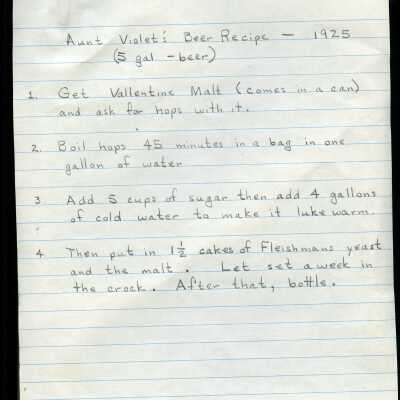 Aunt Violet's Beer Recipe — 1925
(5 gal - beer)
1. Get Vallentine Malt (comes in a can)
and ask for hops with it.
2. Boil hops 45 minutes in a bag in one
gallon of water
3 Add 5 cups of sugar then add 4 gallons
of cold water to make it luke warm.
4 Then put in 1 1/2 cakes of Fleishmans yeast
and the malt. Let set a week in
the crock. After that, bottle.